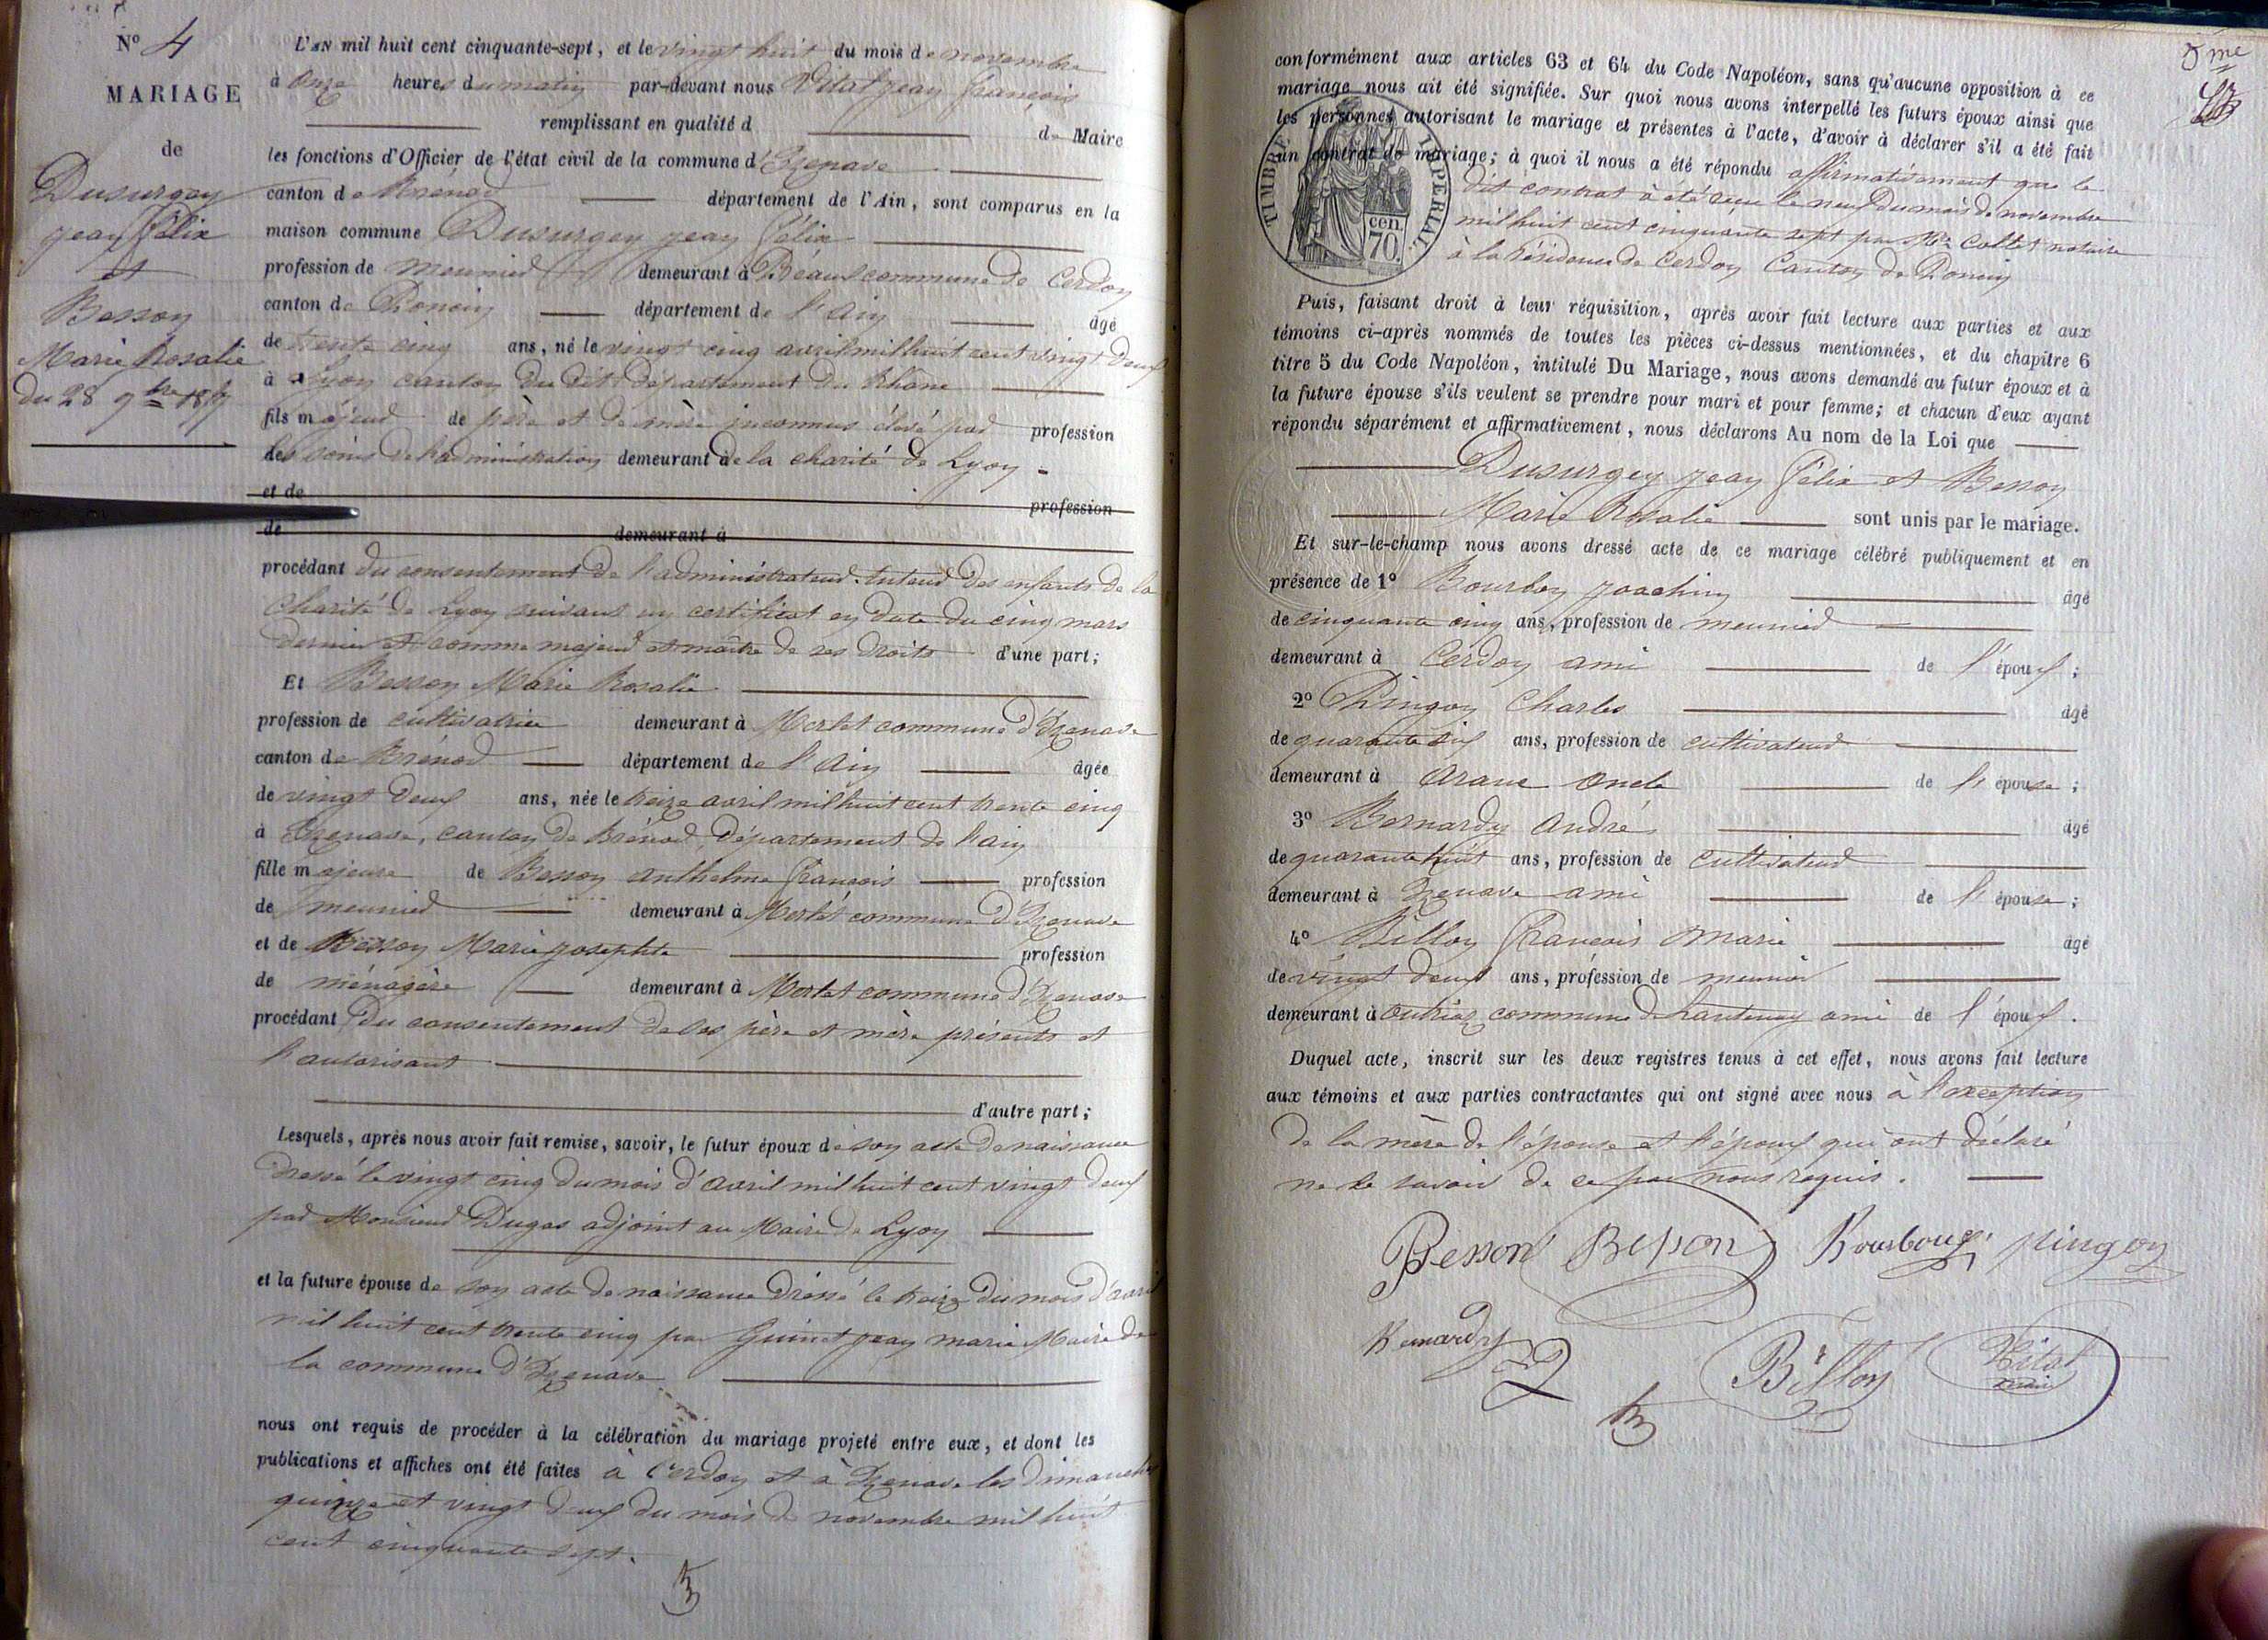 N° 4
MARIAGE
de
Dusurgey
jean félix
et
Besson
Marie Rosalie
du 28 9bre 1857
L'AN mil huit cent cinquante-sept, et le vingt huit du mois de novembre
à onze heures du matin par-devant nous Vital jean françois
remplissant en qualité d de Maire
les fonctions d'Officier de l'état civil de la commune d'Izenave
canton de Brénod département de l'Ain, sont comparus en la
maison commune Dusurgey jean félix
profession de meunier demeurant à Préaux commune de Cerdon
canton de Poncin département de l'ain âgé
de trente cinq ans, né le vingt cinq avril mil huit cent vingt deux
à Lyon canton du dit département du Rhône
fils majeur de père et de mère inconnus élevé par profession
des soins de l'administration demeurant à de la charité de Lyon
et de profession
de demeurant à
procédant du consentement de l'administrateur tuteur des enfants de la
charité de Lyon suivant un certificat en date du cinq mars
dernier et comme majeur et maître de ses droits d'une part;
Et Besson Marie Rosalie
profession de cultivatrice demeurant à Mortet commune d'Izenave
canton de Brénod département de l'ain âgée
de vingt deux ans, née le treize avril mil huit cent trente cinq
à Izenave, canton de Brénod, département de l'ain
fille majeure de Besson anthelme françois profession
de meunier demeurant à Mortet commune d'Izenave
et de Besson Marie josephte profession
de ménagère demeurant à Mortet commune d'Izenave
procédant du consentement de ses père et mère présents et
l'autorisant
d'autre part;
Lesquels, après nous avoir fait remise, savoir, le futur époux de son acte de naissance
dressé le vingt cinq du mois d'avril mil huit cent vingt deux
par Monsieur Dugas adjoint au Maire de Lyon
et la future épouse de son acte de naissance dressé le treize du mois d'avril
mil huit cent trente cinq par Guinet jean marie Maire de
la commune d'Izenave
nous ont requis de procéder à la célébration du mariage projeté entre eux, et dont les
publications et affiches ont été faites à Cerdon et à Izenave les dimanches
quinze et vingt deux du mois de novembre mil huit
cent cinquante sept.
5me
conformément aux articles 63 et 64 du Code Napoléon, sans qu'aucune opposition à ce
mariage nous ait été signifiée. Sur quoi nous avons interpellé les futurs époux ainsi que
les personnes autorisant le mariage et présentes à l'acte, d'avoir à déclarer s'il a été fait
un contrat de mariage; à quoi il nous a été répondu affirmativement que le
dit contrat à été reçu le neuf du mois de novembre
mil huit cent cinquante sept par Me Collet notaire
à la résidence de Cerdon Canton de Poncin
TIMBRE IMPERIAL
cen.
70.
Puis, faisant droit à leur réquisition, après avoir fait lecture aux parties et aux
témoins ci-après nommés de toutes les pièces ci-dessus mentionnées, et du chapitre 6
titre 5 du Code Napoléon, intitulé Du Mariage, nous avons demandé au futur époux et à
la future épouse s'ils veulent se prendre pour mari et pour femme; et chacun d'eux ayant
répondu séparément et affirmativement, nous déclarons Au nom de la Loi que
Dusurgey jean félix et Besson
Marie Rosalie sont unis par le mariage.
Et sur-le-champ nous avons dressé acte de ce mariage célébré publiquement et en
présence de 1° Bourbon joachim âgé
de cinquante cinq ans, profession de meunier
demeurant à Cerdon ami de l'époux;
2° Pingon Charles âgé
de quarante six ans, profession de cultivateur
demeurant à aranc oncle de l'épouse;
3° Bernardy andré âgé
de quarante huit ans, profession de cultivateur
demeurant à Izenave ami de l'épouse;
4° Billon françois marie âgé
de vingt deux ans, profession de meunier
demeurant à outriaz commune de Lantenay ami de l'époux.
Duquel acte, inscrit sur les deux registres tenus à cet effet, nous avons fait lecture
aux témoins et aux parties contractantes qui ont signé avec nous à l'exception
de la mère de l'épouse et l'époux qui ont déclaré
ne le savoir de ce par nous requis.
Besson Besson Bourbon pingon
Bernardy
Billon Vital
maire